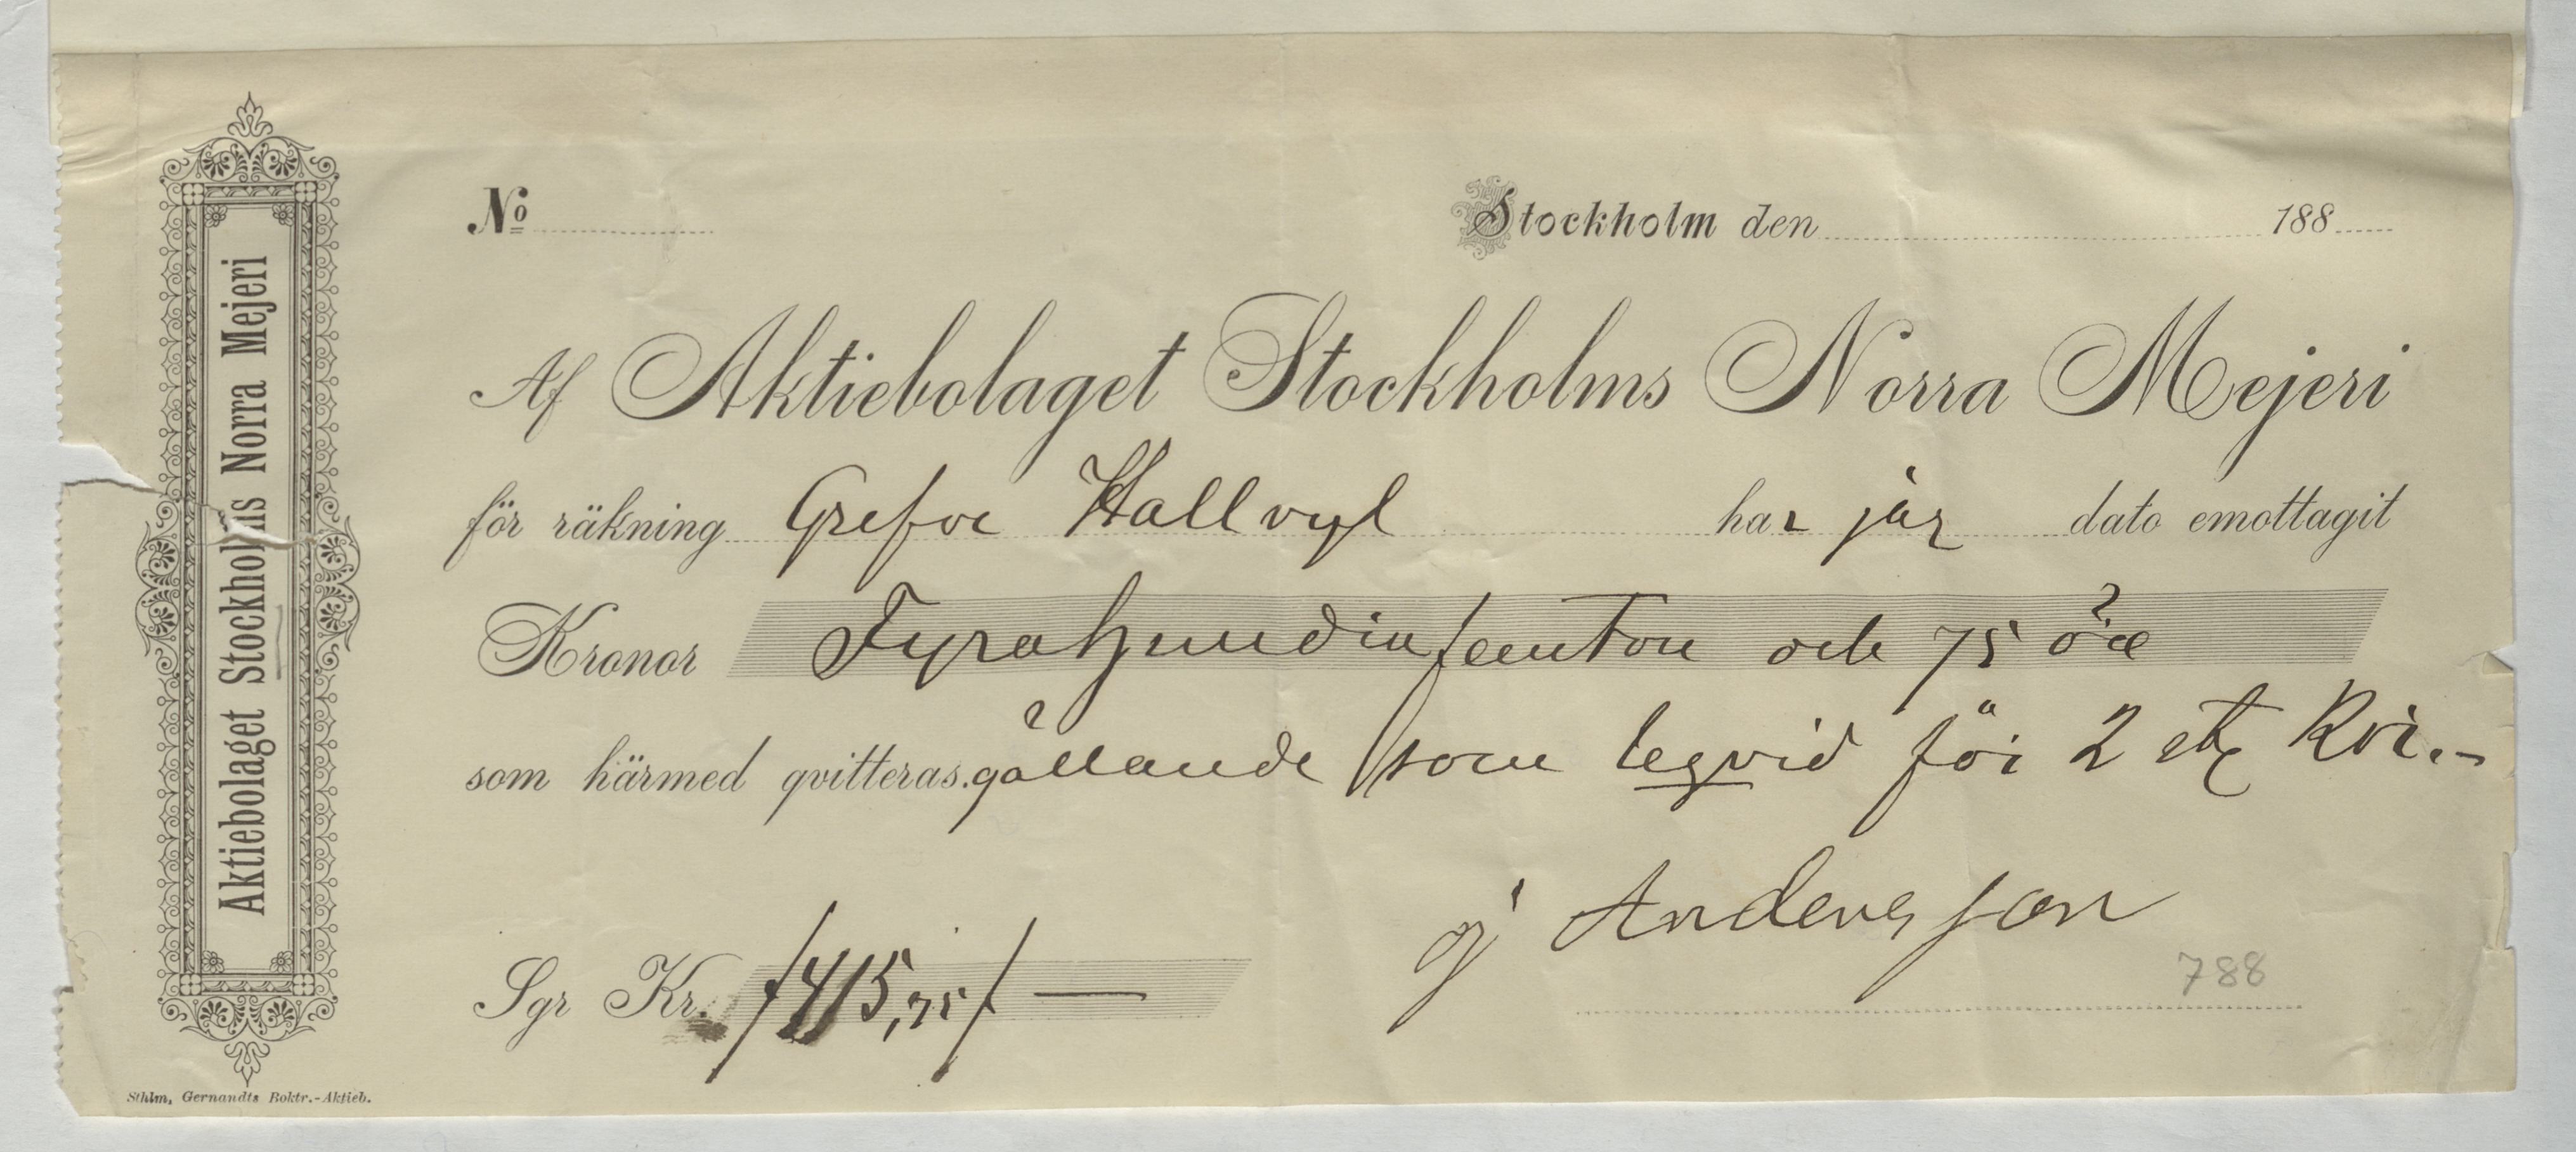 Aktiebolaget Stockholms Norra Mejeri
No
Stockholm den 188
Af Aktiebolaget Stockholms Norra Mejeri
för räkning Grefve Hallvyl har jag dato emottagit
Kronor Fyrahundrafemton och 75 öre
som härmed qvitteras. gällande som leqvid för 2 st Kvi.-
Sgr Kr. /415,75/ —
J Andersson
788
Sthlm, Gernandts Boktr.-Aktieb.